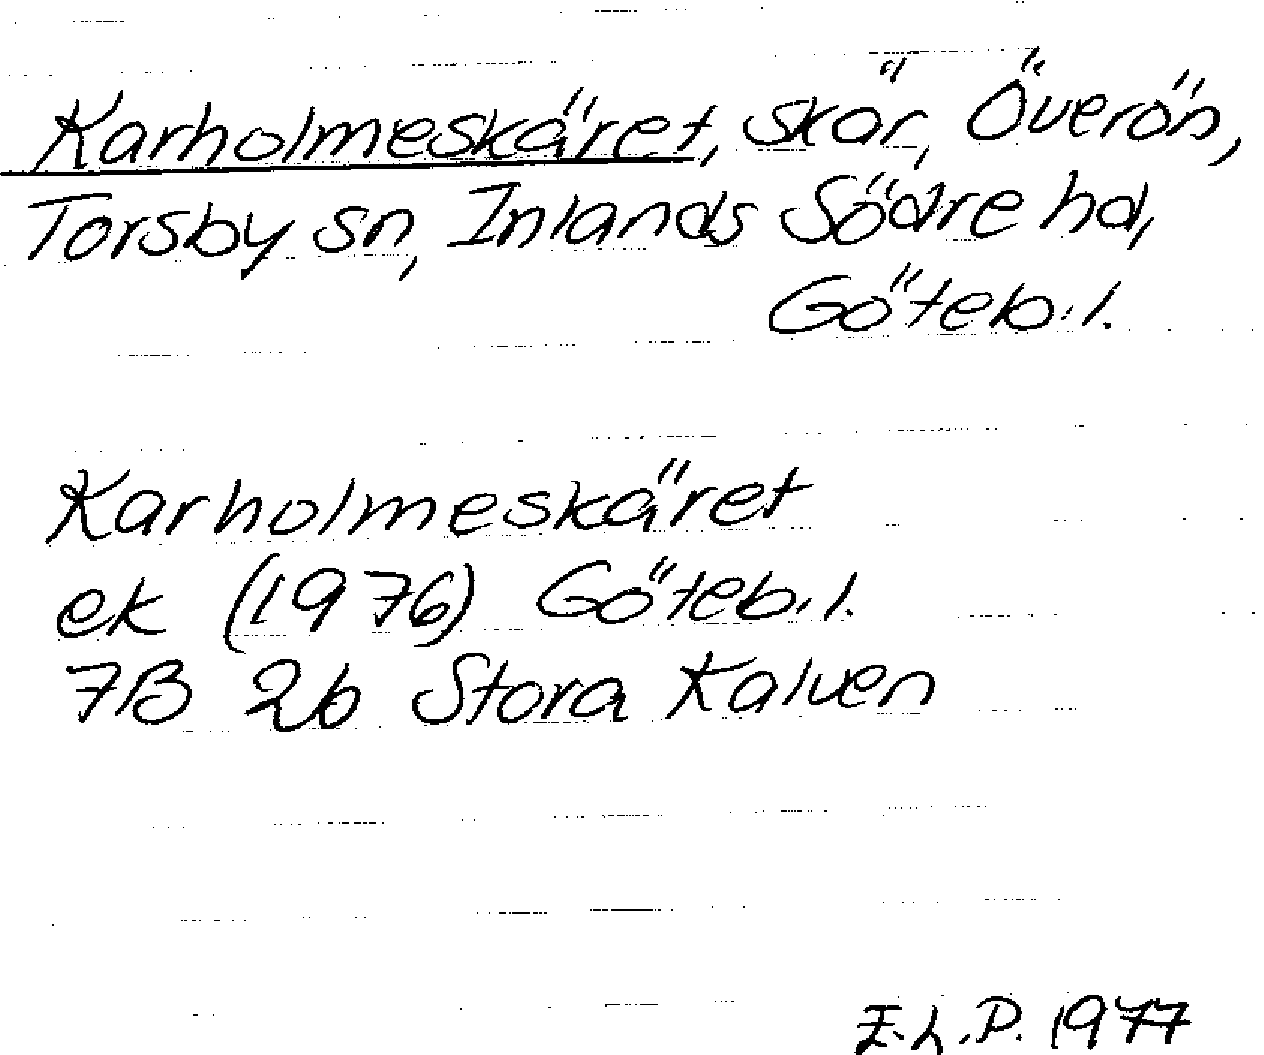 Karholmeskäret, skär, Överön,
Torsby sn, Inlands Södre hd,
Göteb.l.
Karholmeskäret
ek (1976) Göteb.l.
7B 2b Stora Kalven
E.L.P. 1977